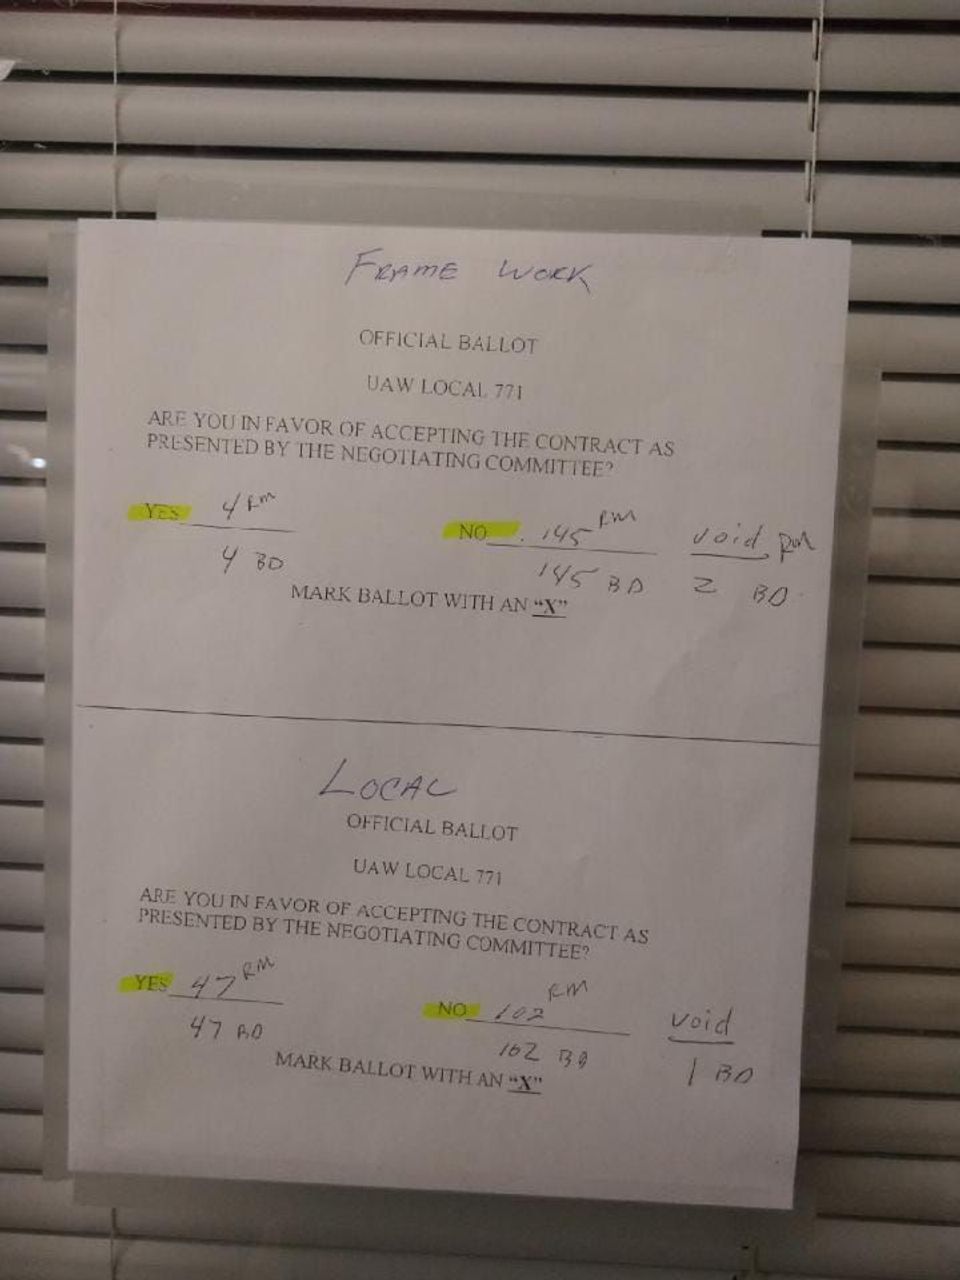 FRAME WORK
OFFICIAL BALLOT
UAW LOCAL 771
ARE YOU IN FAVOR OF ACCEPTING THE CONTRACT AS
PRESENTED BY THE NEGOTIATING COMMITTEE?
YES 4 RM NO 145 RM void RM
4 BD 145 BD 2 BD
MARK BALLOT WITH AN “X”
LOCAL
OFFICIAL BALLOT
UAW LOCAL 771
ARE YOU IN FAVOR OF ACCEPTING THE CONTRACT AS
PRESENTED BY THE NEGOTIATING COMMITTEE?
YES 47 RM NO 102 RM void
47 BD 102 BD 1 BD
MARK BALLOT WITH AN “X”